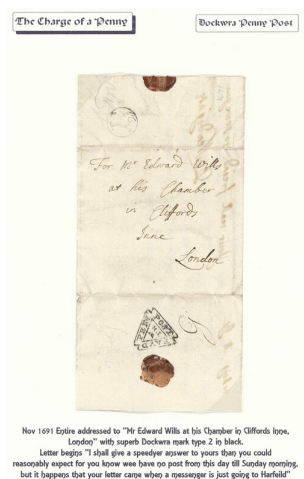 The Charge of a Penny
Dockwra Penny Post
For Mr Edward Wills
at his Chamber
in Cliffords
Inne
London
PENY POST PAYD
Nov 1691 Entire addressed to "Mr Edward Wills at his Chamber in Cliffords Inn,
London" with superb Dockwra mark type 2 in black.
Letter begins "I shall give a speedyer answer to yours than you could
reasonably expect for you know wee have no post from this day till Sunday morning,
but it happens that your letter came when a messenger is just going to Harfeild"